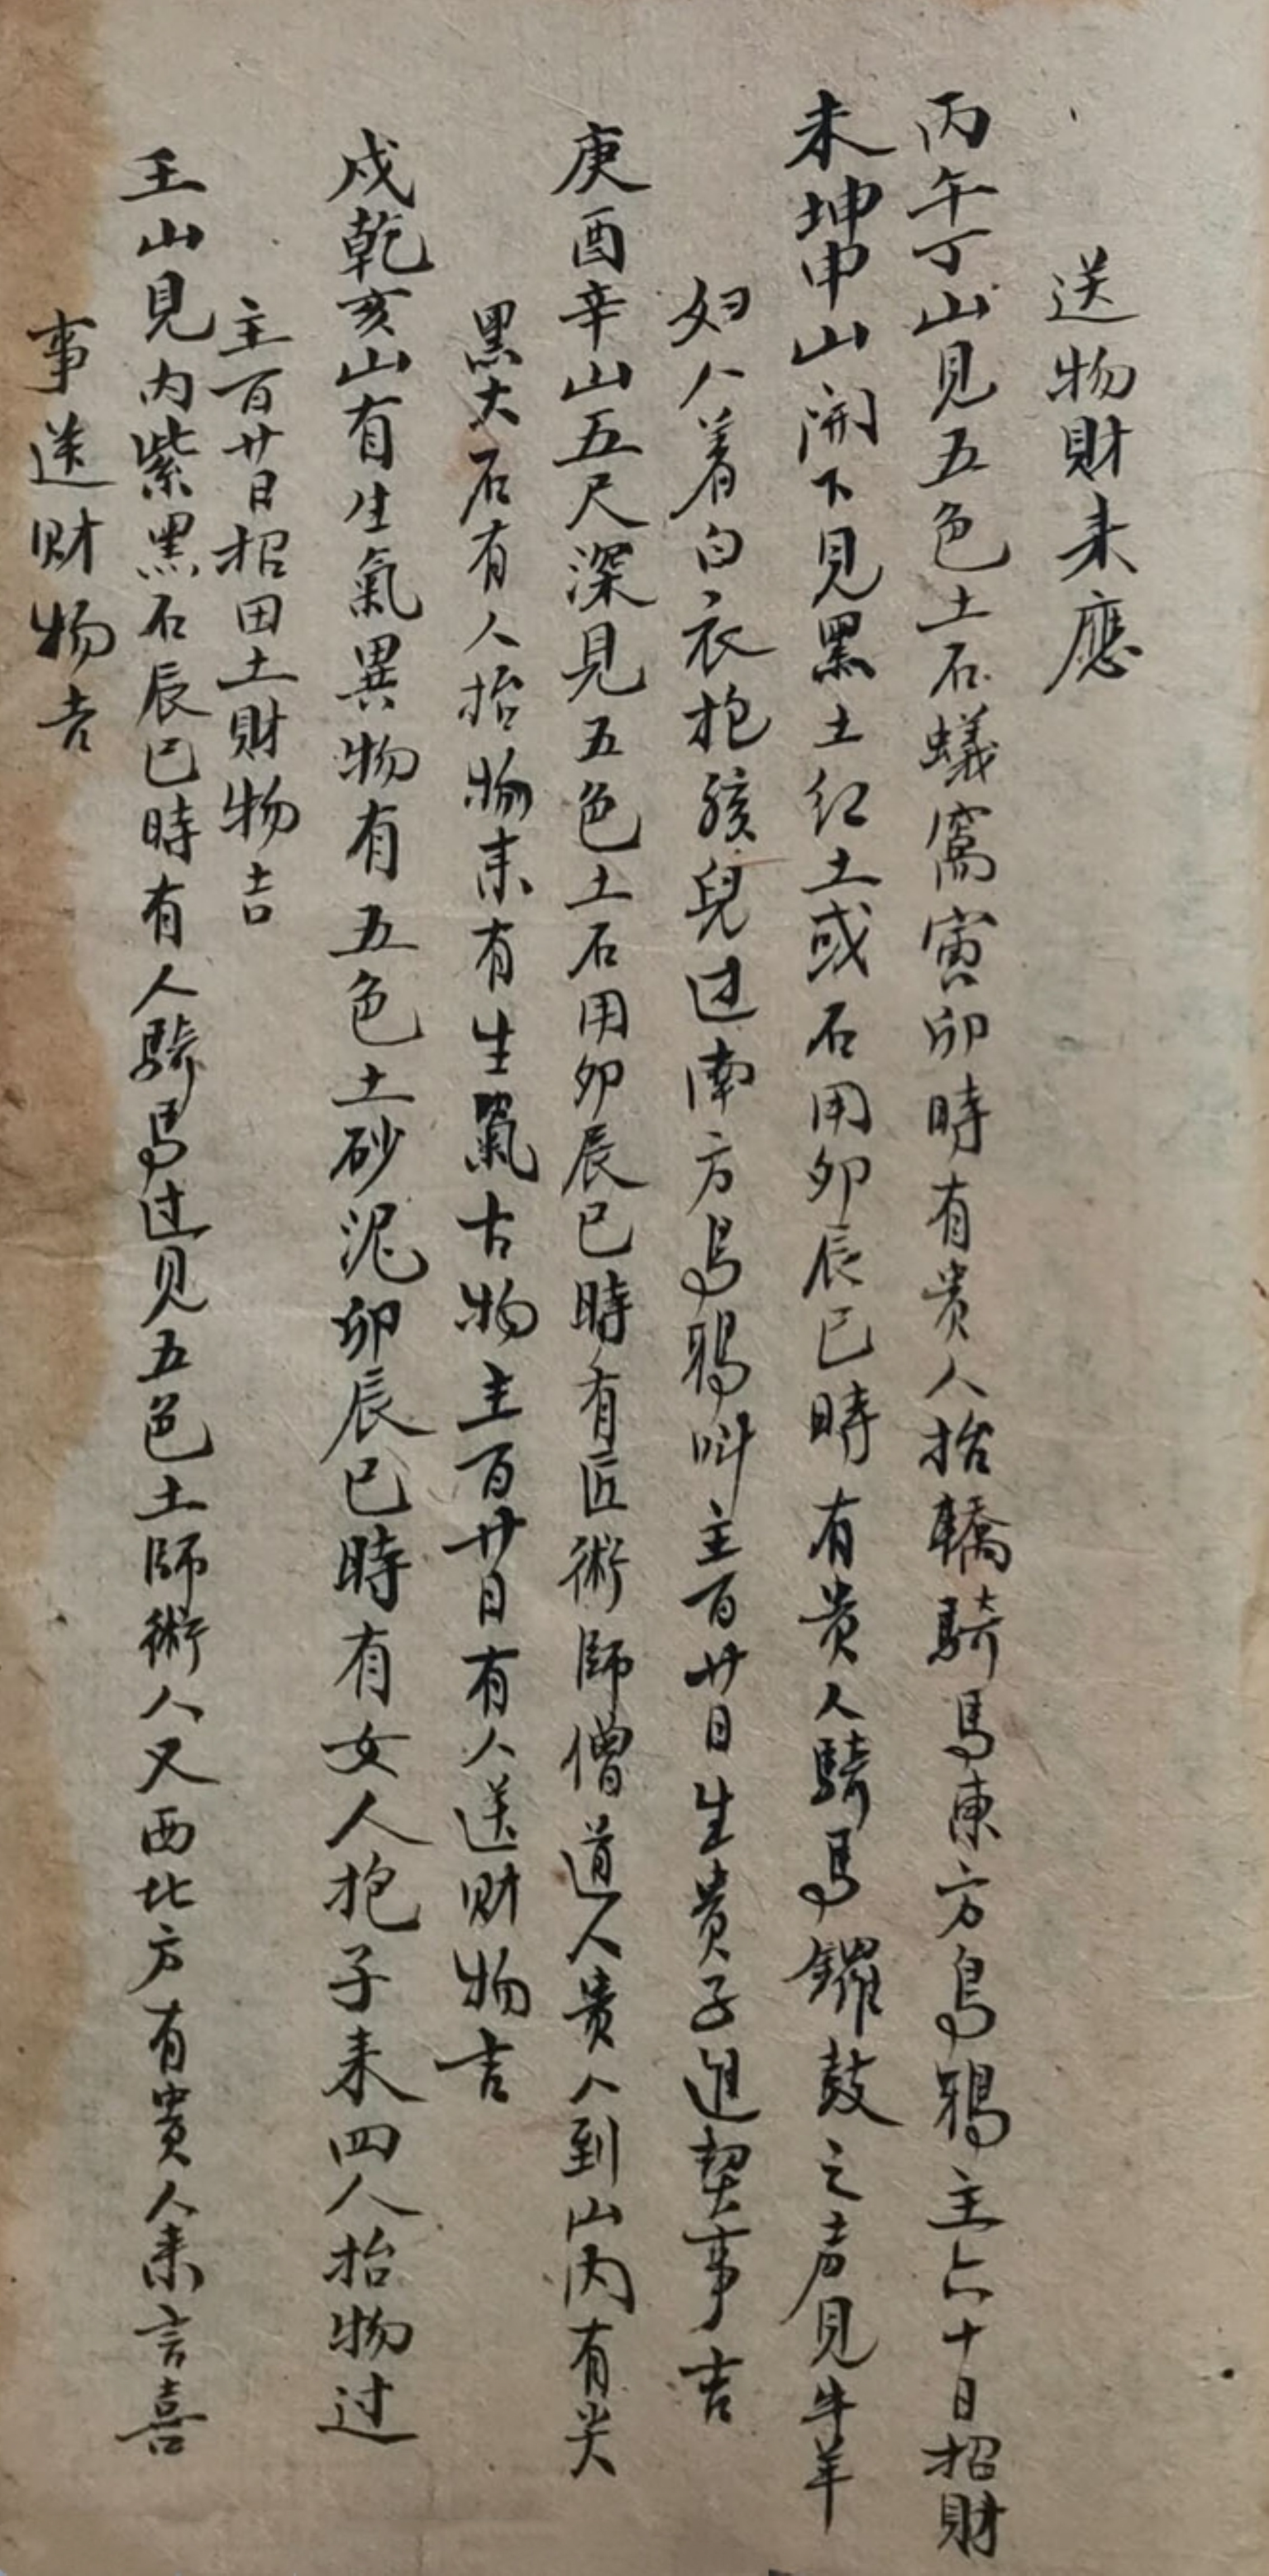 送物財来應
丙午丁山見五色土石蟻窩寅卯時有贵人抬轎騎馬東方烏鴉主六十日招財
未坤申山開下見黑土红土或石用卯辰巳時有贵人騎馬鑼鼓之声見牛羊
妇人着白衣抱孩兒过南方烏鴉呌主百廿日生貴子進契事吉
庚酉辛山五尺深見五色土石用卯辰巳時有匠術師僧道人贵人到山内有尖
黑大石有人抬物来有生氣古物主百廿日有人送财物吉
戍乾亥山有生氣異物有五色土砂泥卯辰巳時有女人抱子来四人抬物过
主百廿日招田土財物吉
壬山見内紫黑石辰巳時有人騎馬过见五色土師術人又西北方有貴人来言喜
事送财物吉